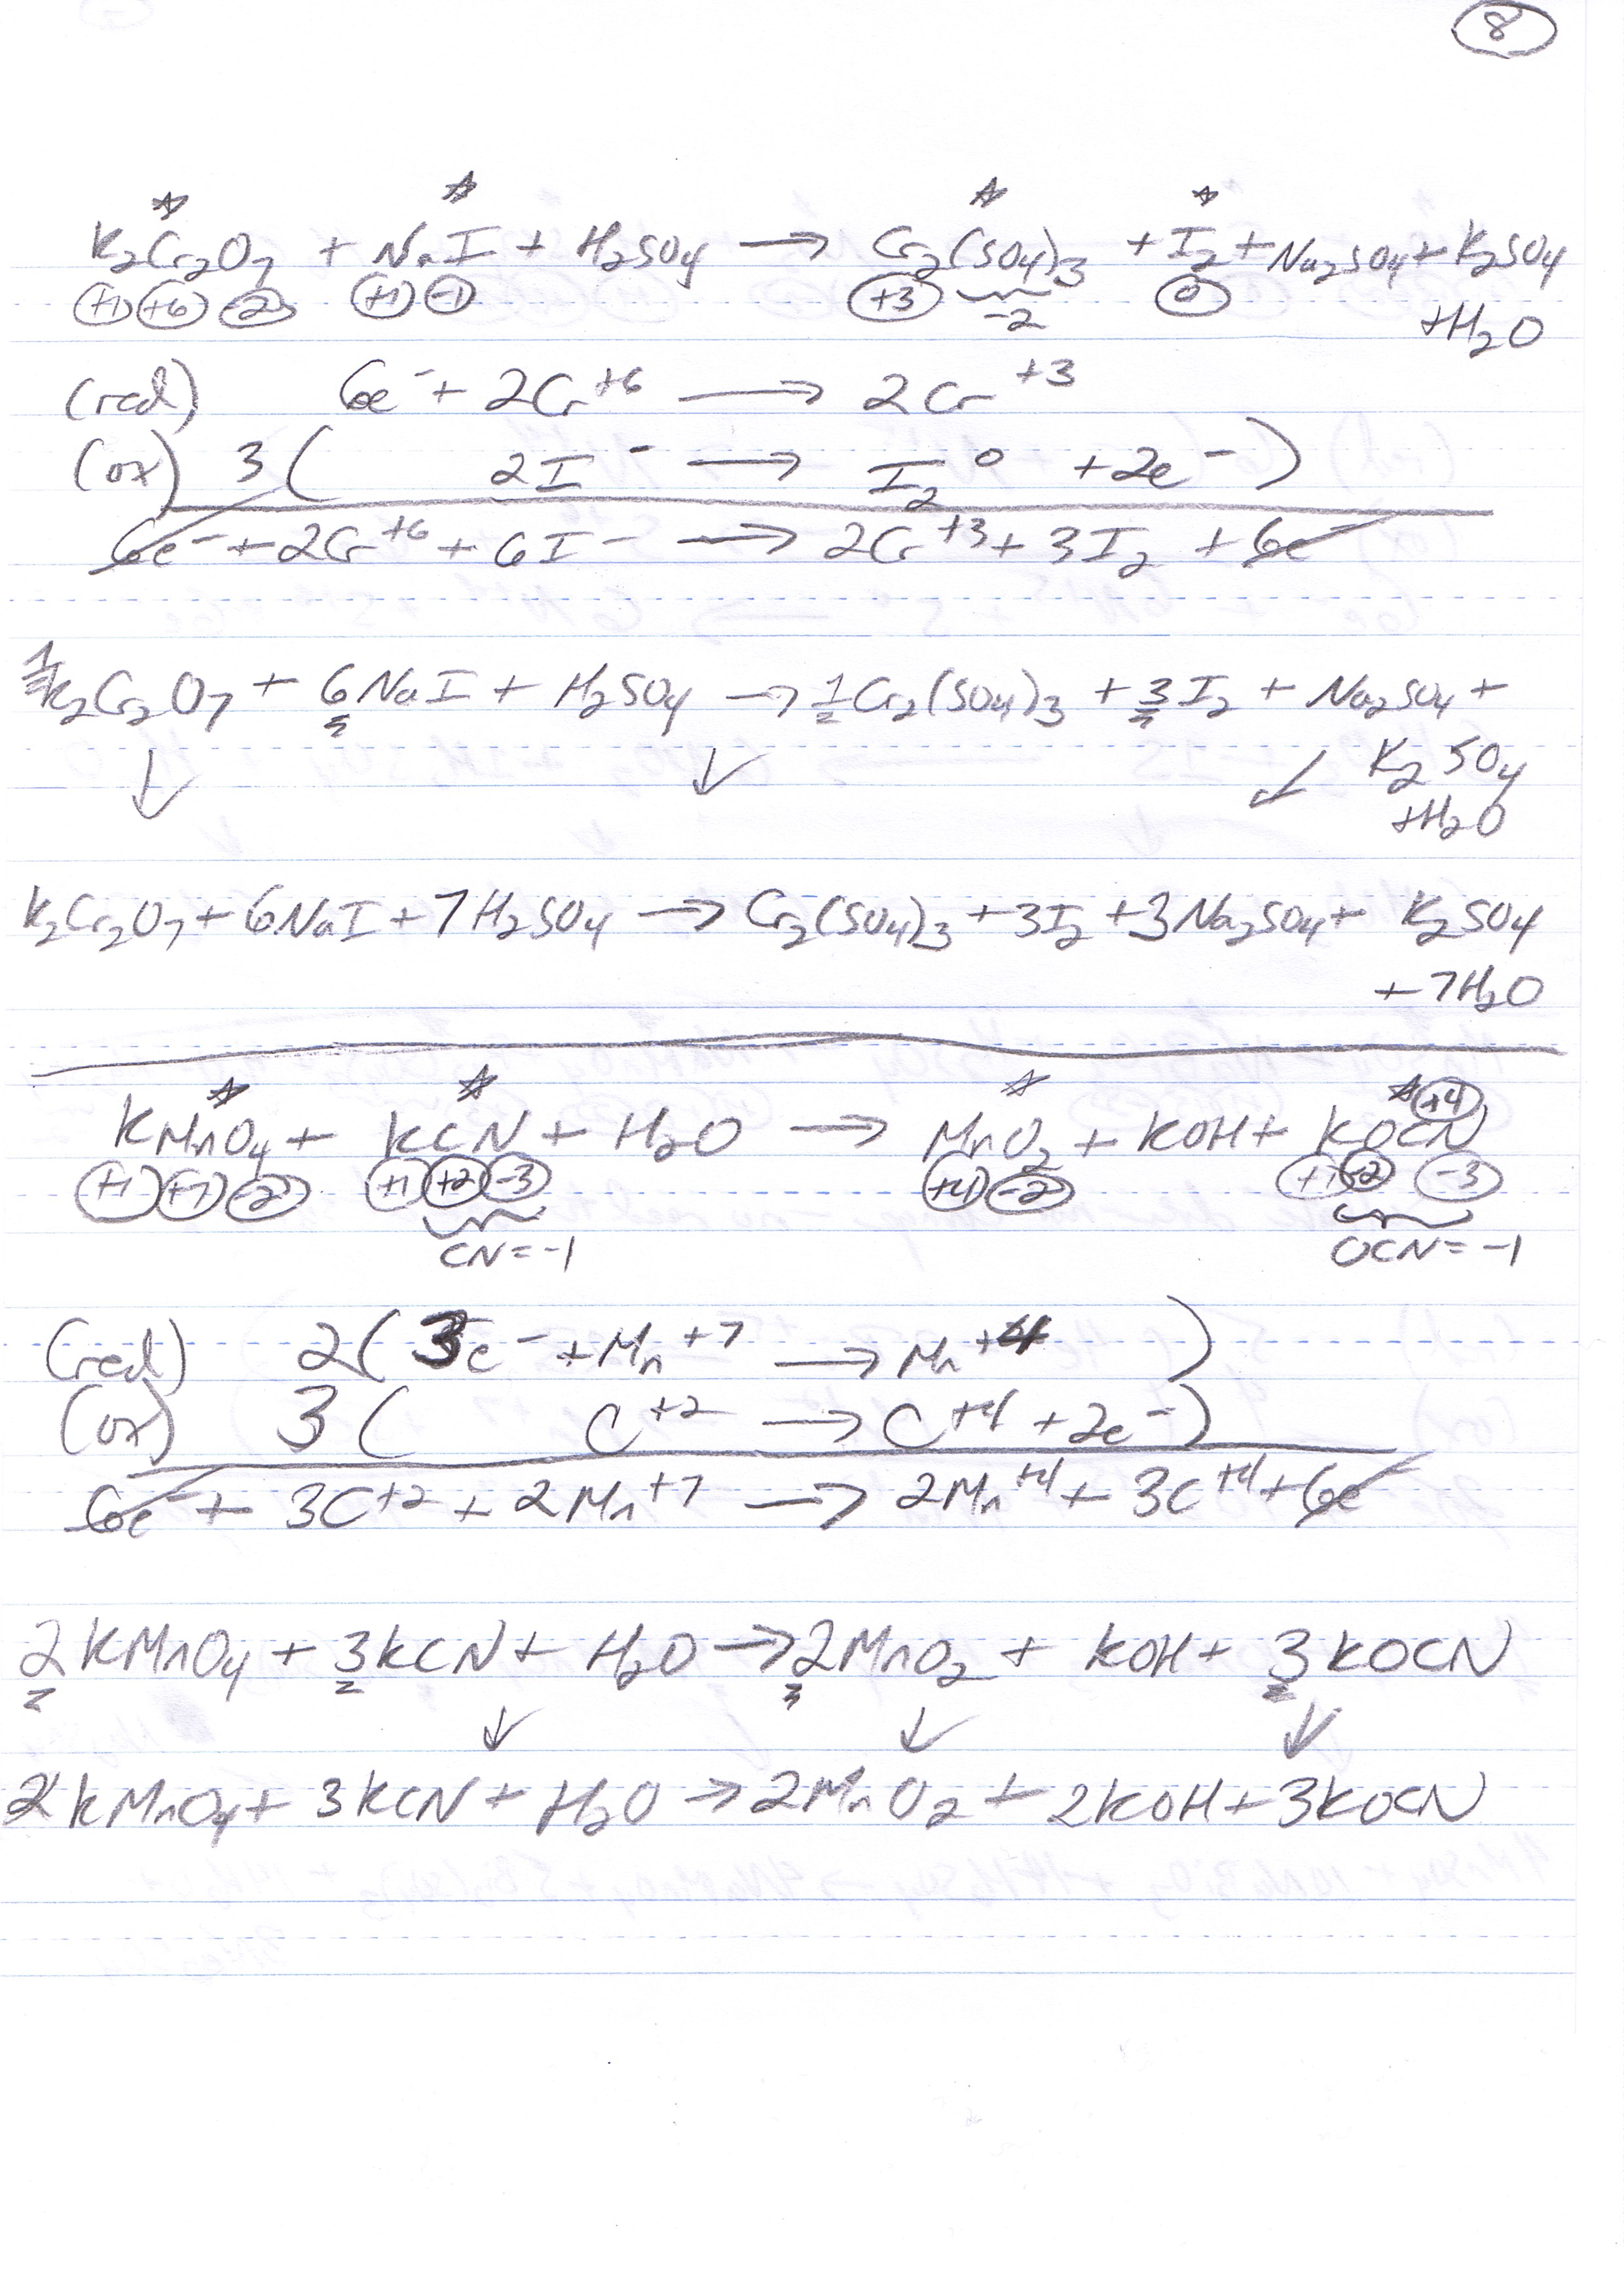 8
K₂Cr₂O₇ + NaI + H₂SO₄ → Cr₂(SO₄)₃ + I₂ + Na₂SO₄ + K₂SO₄
+1 +6 -2 +1 -1 +3 -2 0 + H₂O
(red) 6e⁻ + 2Cr⁺⁶ → 2Cr⁺³
(ox) 3( 2I⁻ → I₂⁰ + 2e⁻ )
6e⁻ + 2Cr⁺⁶ + 6I⁻ → 2Cr⁺³ + 3I₂ + 6e⁻
1K₂Cr₂O₇ + 6NaI + H₂SO₄ → 1Cr₂(SO₄)₃ + 3I₂ + Na₂SO₄ +
↓ ↓ ↙ K₂SO₄
+ H₂O
K₂Cr₂O₇ + 6NaI + 7H₂SO₄ → Cr₂(SO₄)₃ + 3I₂ + 3Na₂SO₄ + K₂SO₄
+ 7H₂O
+4
KMnO₄ + KCN + H₂O → MnO₂ + KOH + KOCN
+1 +7 -2 +1 +2 -3 +4 -2 +1 -2 -3
CN = -1 OCN = -1
(red) 2( 3e⁻ + Mn⁺⁷ → Mn⁺⁴ )
(ox) 3( C⁺² → C⁺⁴ + 2e⁻ )
6e⁻ + 3C⁺² + 2Mn⁺⁷ → 2Mn⁺⁴ + 3C⁺⁴ + 6e⁻
2KMnO₄ + 3KCN + H₂O → 2MnO₂ + KOH + 3KOCN
↓ ↓ ↓
2KMnO₄ + 3KCN + H₂O → 2MnO₂ + 2KOH + 3KOCN